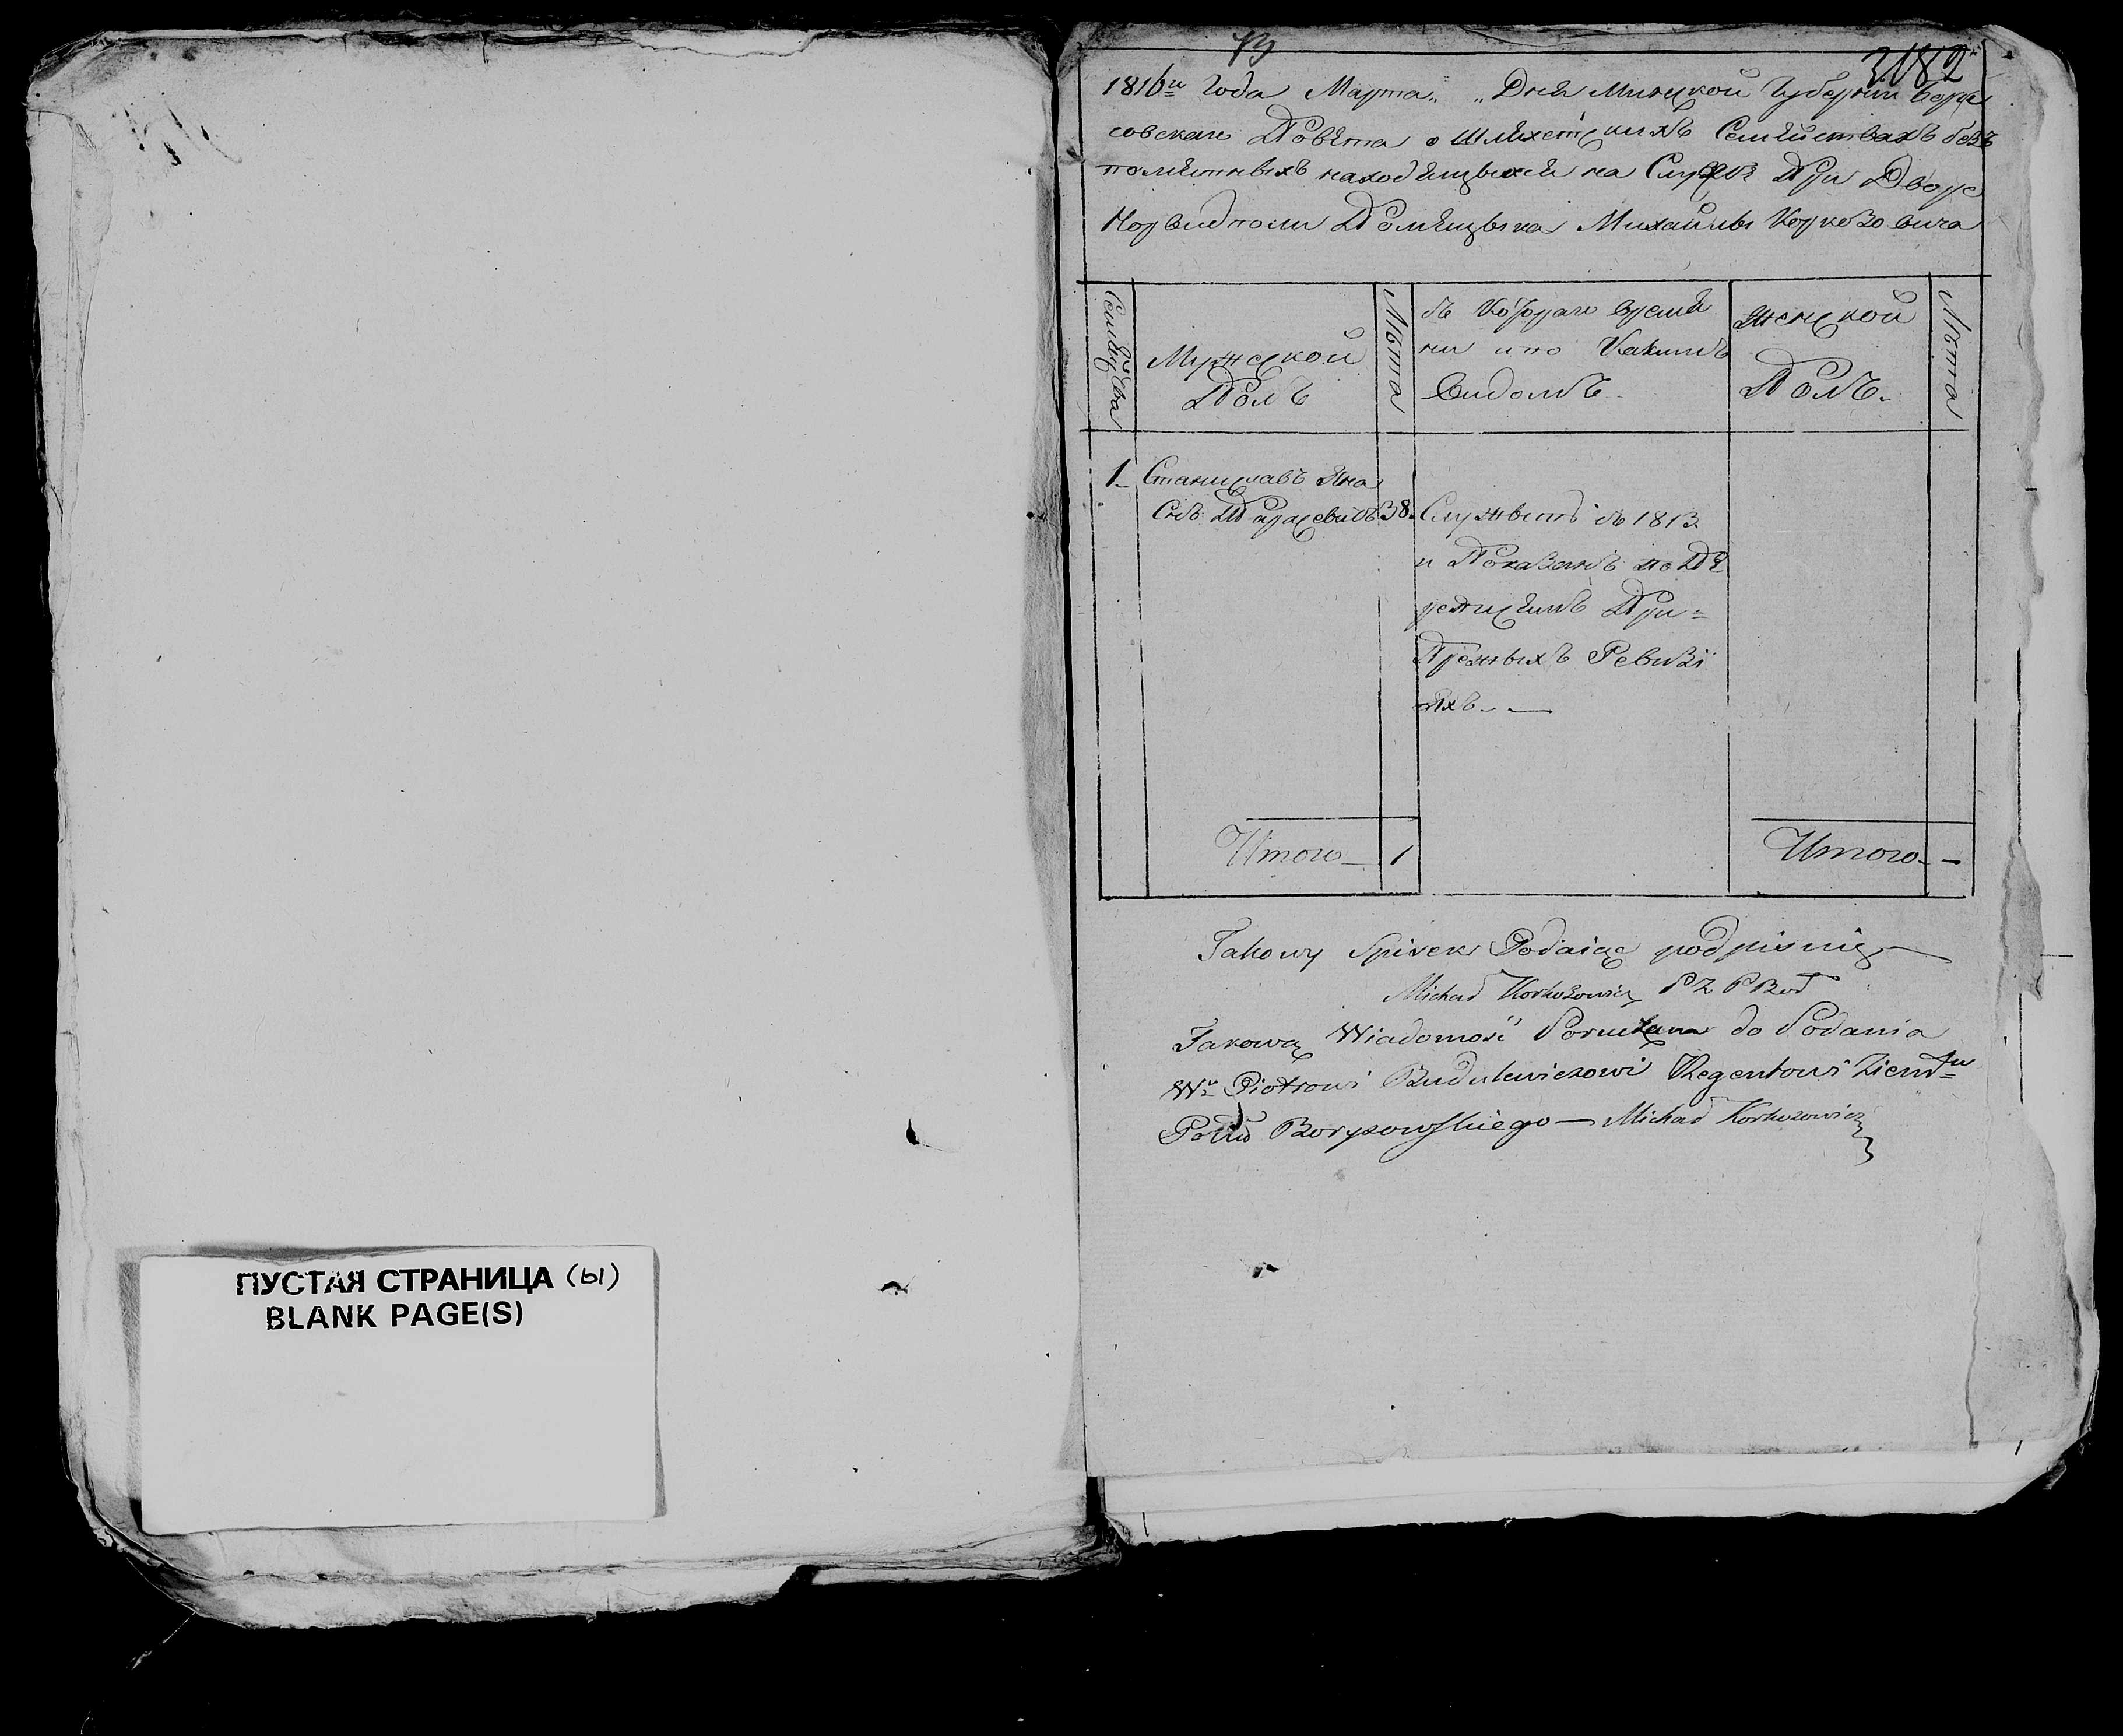 73
3182
1816го Года Марта „ „ Дня Минской Губернии Бори
совскаго Повѣта о Шляхетскихъ Семействахъ безъ
помѣстныхъ находящыхся на Службѣ При Дворе
Норвидполи Помѣщыка Михайлы Коркозовича
Семейства
Мужской
Полъ
Лѣта
съ котораго время
ни и по Какимъ
Видомъ.
Женской
Полъ.
Лѣта
1. Станиславъ Яна
Снъ 38.
Служытъ съ 1813
и Показанъ по
При=
Прежныхъ Ревизі
яхъ. —
Итого 1
Итого - -
Takowy Spisek Podaiąc podpisuię
Michał Korkozowicz P Z P Bor
Takową Wiadomość Poruczam do Podania
Wu Piotrowi Budulewiczowi Regentowi Ziemu
Pottu Borysowskiego — Michał Korkozowicz
ПУСТАЯ СТРАНИЦА (ы)
BLANK PAGE(S)